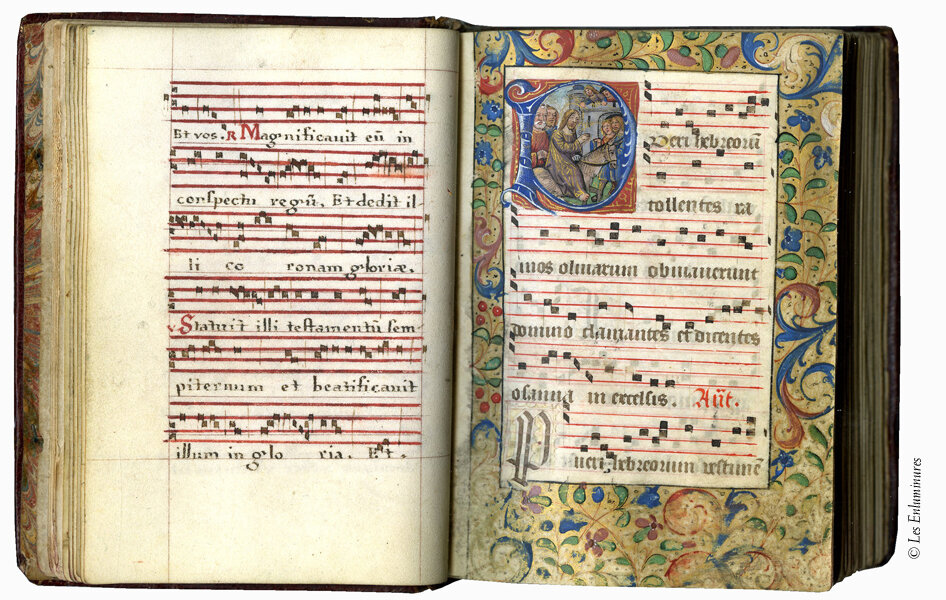 Et vos. R Magnificavit eū in
conspectu regū. Et dedit il-
li co ronam gloriæ.
v Statuit illi testamentū sem-
piternum et beatificavit
illum in glo ria. Et.
Pueri hebreorū
tollentes ra
mos olivarum obviaverunt
domino clamantes et dicentes
osanna in excelsis. Añt.
Pueri hebreorum vestime
© Les Enluminures